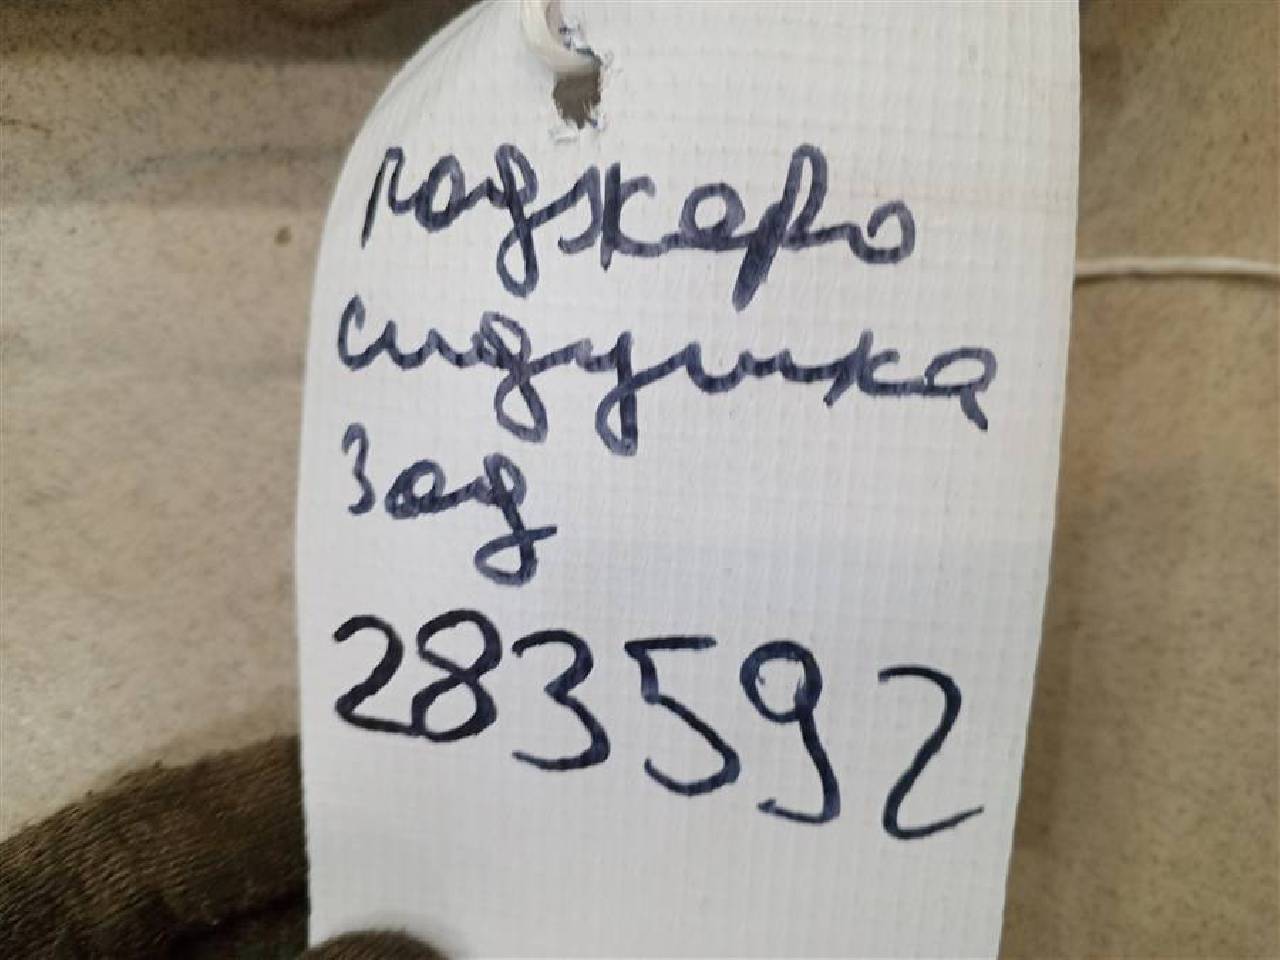 паджеро
сидушка
зад
283592